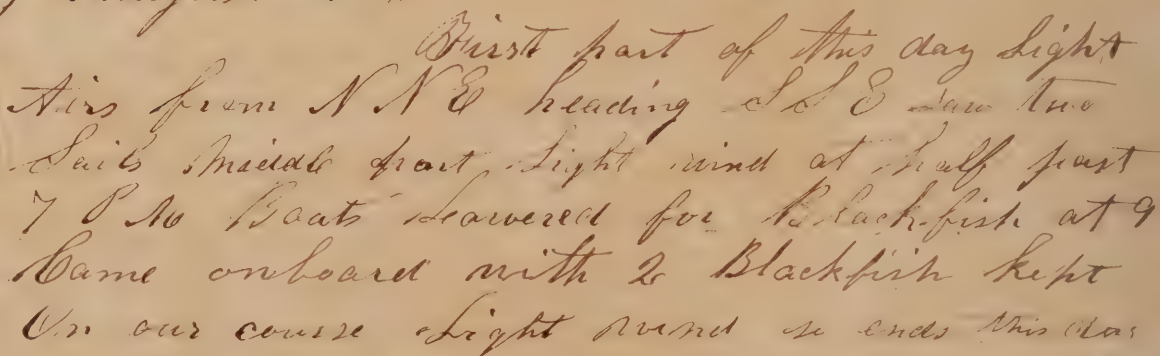 First part of this day Light
Airs from N N E heading S S E Saw two
Sails Middle part Light wind at half past
7 P M Boats Lowered for Blackfish at 9
Came onboard with 2 Blackfish kept
On our course Light wind so ends this day